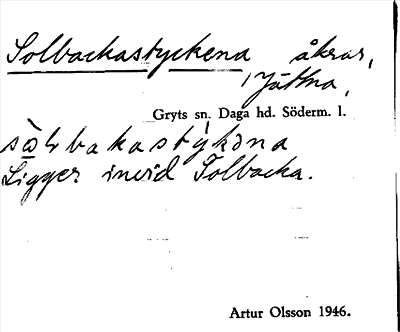 Solbackastyckena, åkrar,
Jättna,
Gryts sn. Daga hd. Söderm. l.
Ligger invid Solbacka.
Artur Olsson 1946.